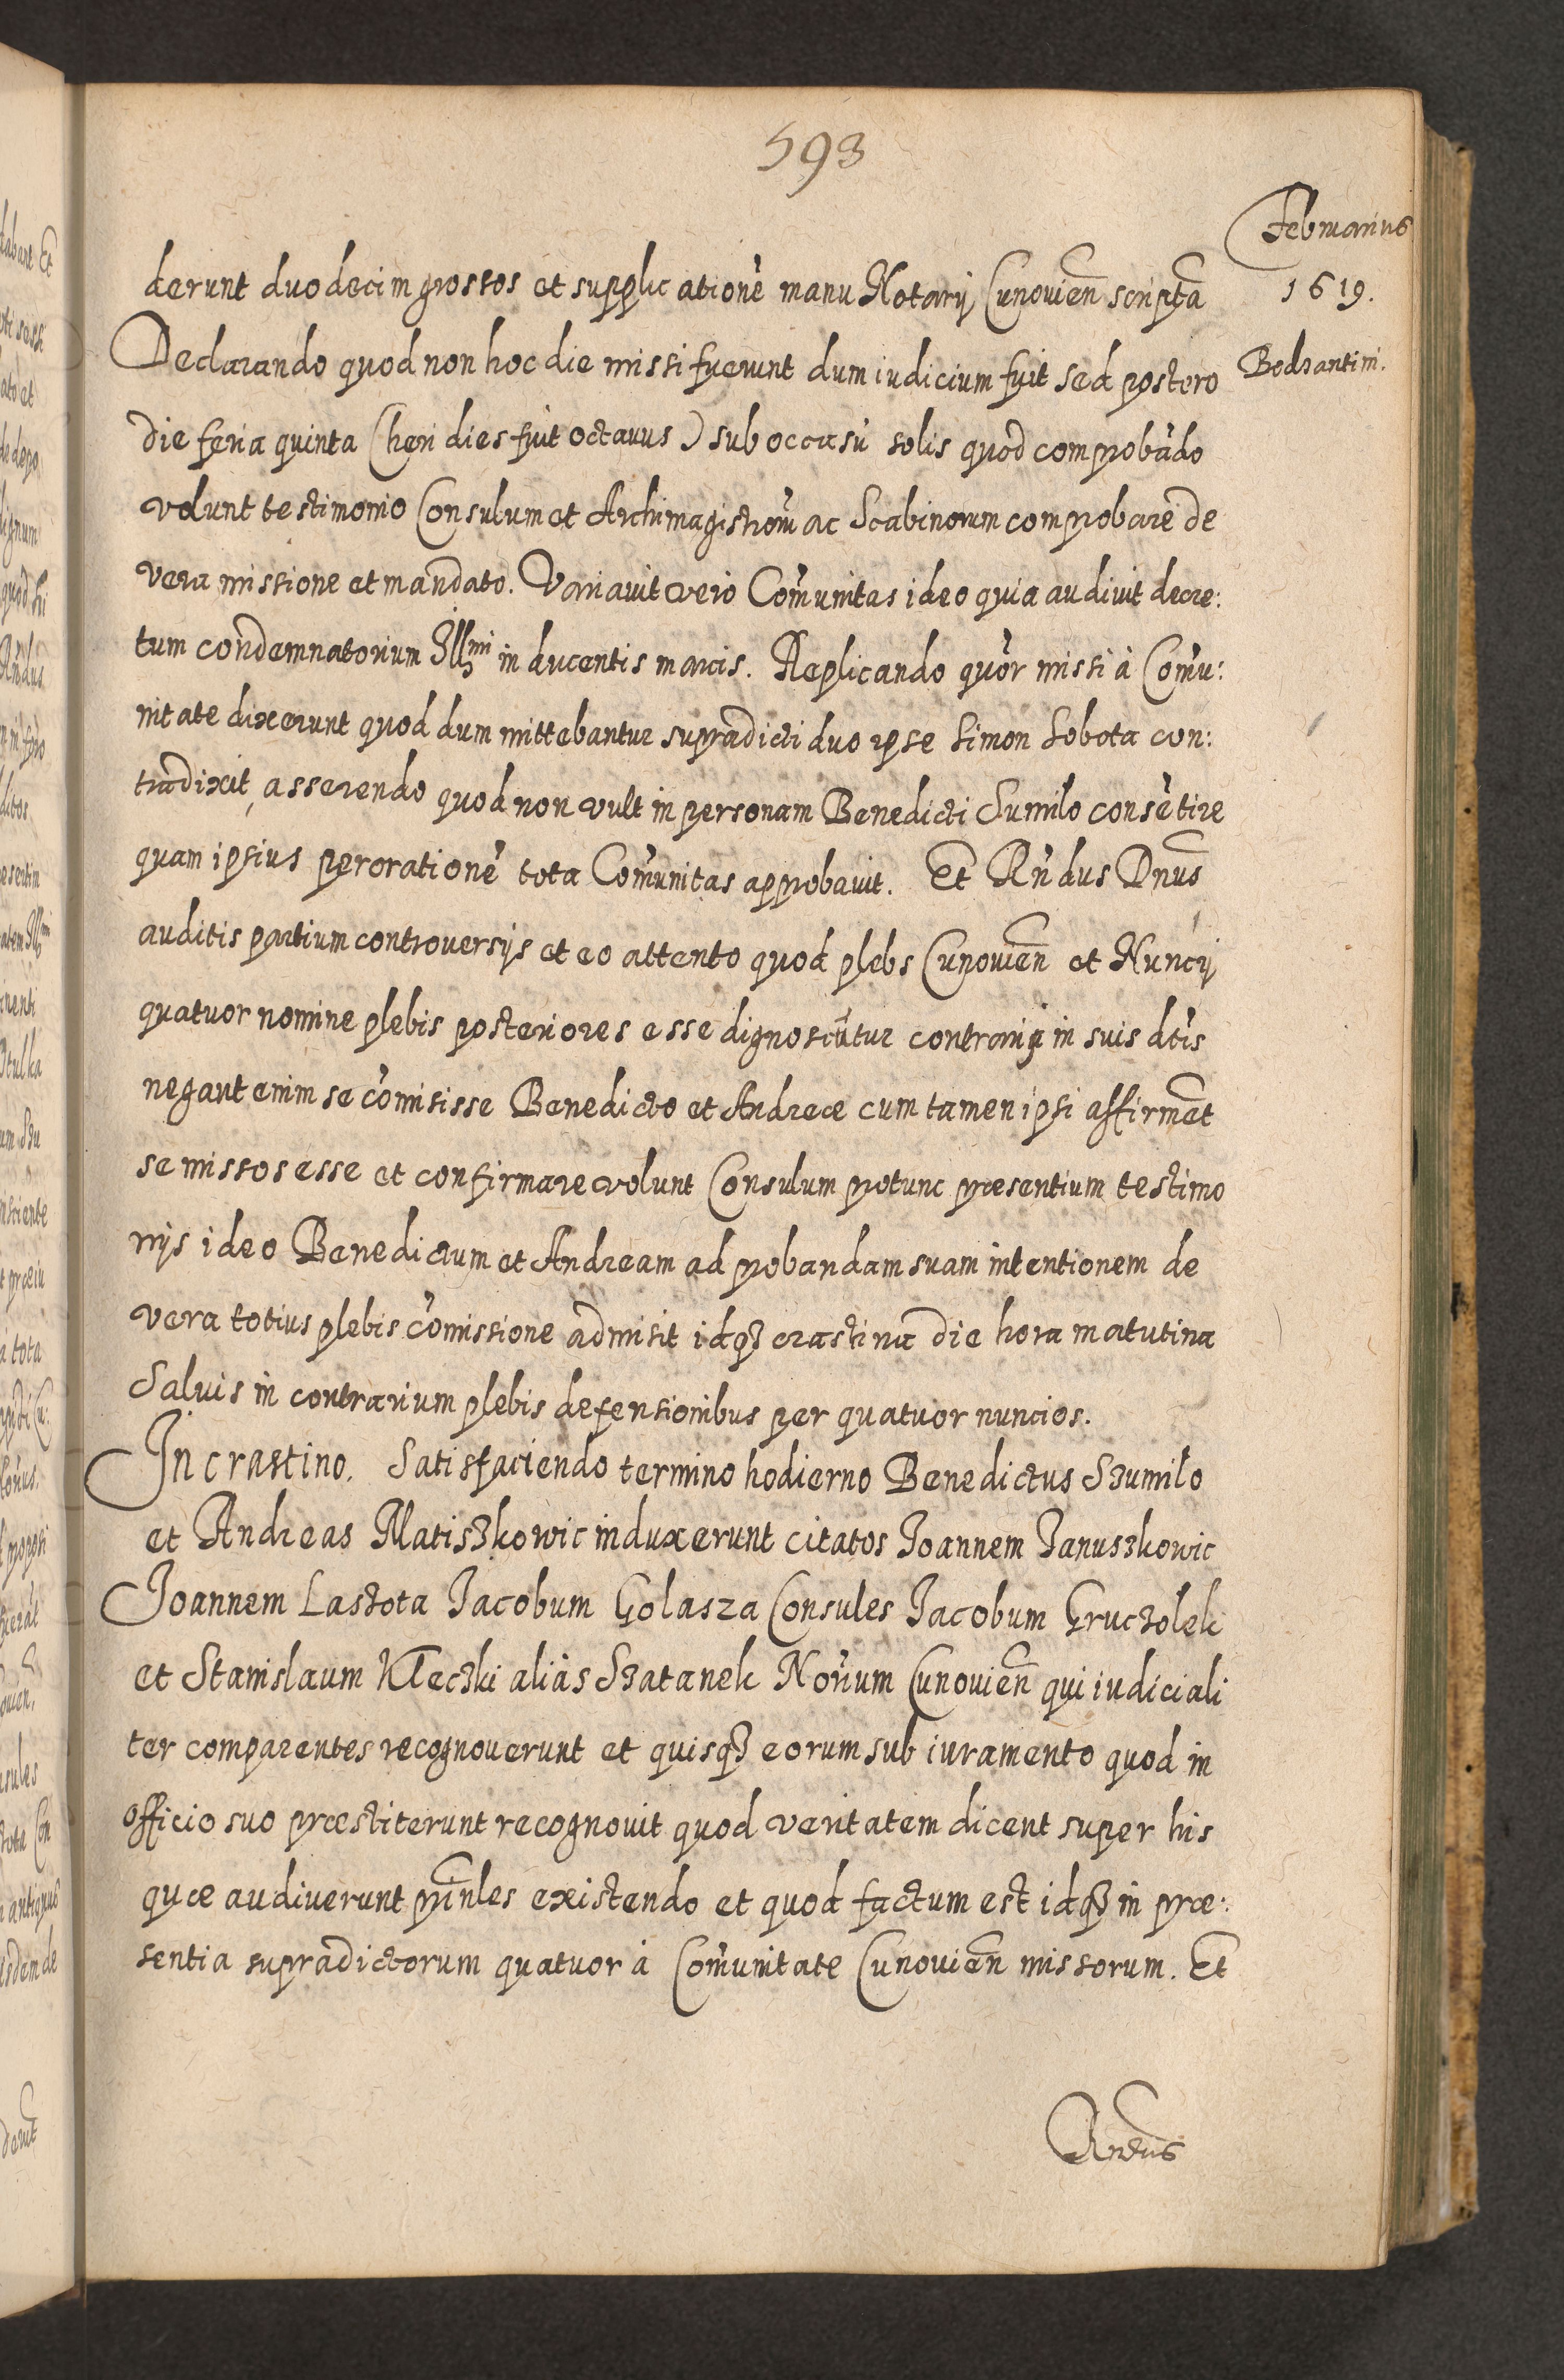 593
Februarius
1619.
Bodzantini.
derunt duodecim grossos et supplicationē manu Notarij Cunovien̄ scriptā
Declarando quod non hoc die missi fuerunt dum iudicium fuit sed postero
die feria quinta (heri dies fuit octavus) sub occasū solis quod comprobādo
volunt testimonio Consulum et Archimagistrorū ac Scabinorum comprobare de
vera missione et mandato. Variavit vero Com̄unitas ideo quia audivit decre:
tum condemnatorium Illmi in ducentis marcis. Replicando quōr missi à Com̄u:
nitate dixerunt quod dum mittebantur supradicti duo ipse Simon Sobota con:
tradixit, asserendo quod non vult in personam Benedicti Sumilo consētire
quam ipsius perorationē tota Com̄unitas approbavit. Et Rn̄dus Dnūs
auditis partium controversijs et eo attento quod plebs Cunovien̄ et Nuncij
quatuor nomine plebis posteriores esse dignoscūtur contrarij in suis dtis
negant enim se com̄isisse Benedicto et Andreæ cum tamen ipsi affirmēt
se missos esse et confirmare volunt Consulum protunc præsentium testimo
nijs ideo Benedictum et Andream ad probandam suam intentionem de
vera totius plebis com̄issione admisit idq3 crastina die hora matutina
Salvis in contrarium plebis defensionibus per quatuor nuncios.
In crastino. Satisfaciendo termino hodierno Benedictus Szumilo
et Andreas Matiszkowic induxerunt citatos Joannem Januszkowic
Joannem Lastota Jacobum Golasza Consules Jacobum Gruczolek
et Stanislaum Kleczki aliàs Szatanek Norīum Cunovien̄ qui iudiciali
ter comparentes recognoverunt et quisq3 eorum sub iuramento quod in
officio suo præstiterunt recognovit quod veritatem dicent super his
quæ audiverunt prīnles existendo et quod factum est idq3 in præ:
sentia supradictorum quatuor à Com̄unitate Cunovien̄ missorum. Et
Rndūs